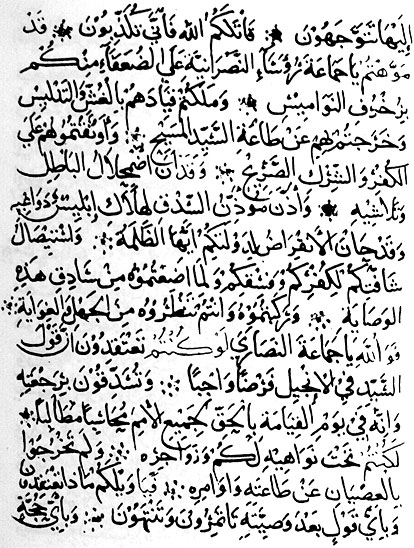 اليها تتوجهون ∴ قاتلكم الله فانى تكذبون ∴ قد
موهتم يا جماعة رؤساء النصرانية على الضعفاء منكم
بزخرف النواميس ∴ وملكتم قيادهم بالغش والتلبيس
وخرجتم بهم عن طاعة السيد المسيح ∴ واوقفتموهم على
الكفر والشرك الصريح ∴ وقد ان اضمحلال الباطل
وتلاشيه ∴ واذن موذن الصدق بهلاك ابليس ودواعيه
وقد حان الانقراض لدولتكم ايها الظلمة ∴ واستيصال
شافتكم لكفركم وفسقكم ولما اضعتموه من شادق هذه
الوصاية ∴ وتركتموه وانتم تنظروه من الجهل والغواية ∴
فوالله يا جماعة النصارى لو كنتم تعتقدون ان قول
السيد في الانجيل فرضا واجبا ∴ وتصدقون برجعته
وانه في يوم القيامة يأتي بحق لجميع الامم محاسبا مطالبا ∴
لكنتم تحت نواهيه لكم وزواجره ∴ ولم تخرجوا
بالعصيان عن طاعته واوامره ∴ فيا ويلكم ماذا تعتقدون
وباي قول بعد وصيته تأتمرون وتنتهون ∴ وباي حجة